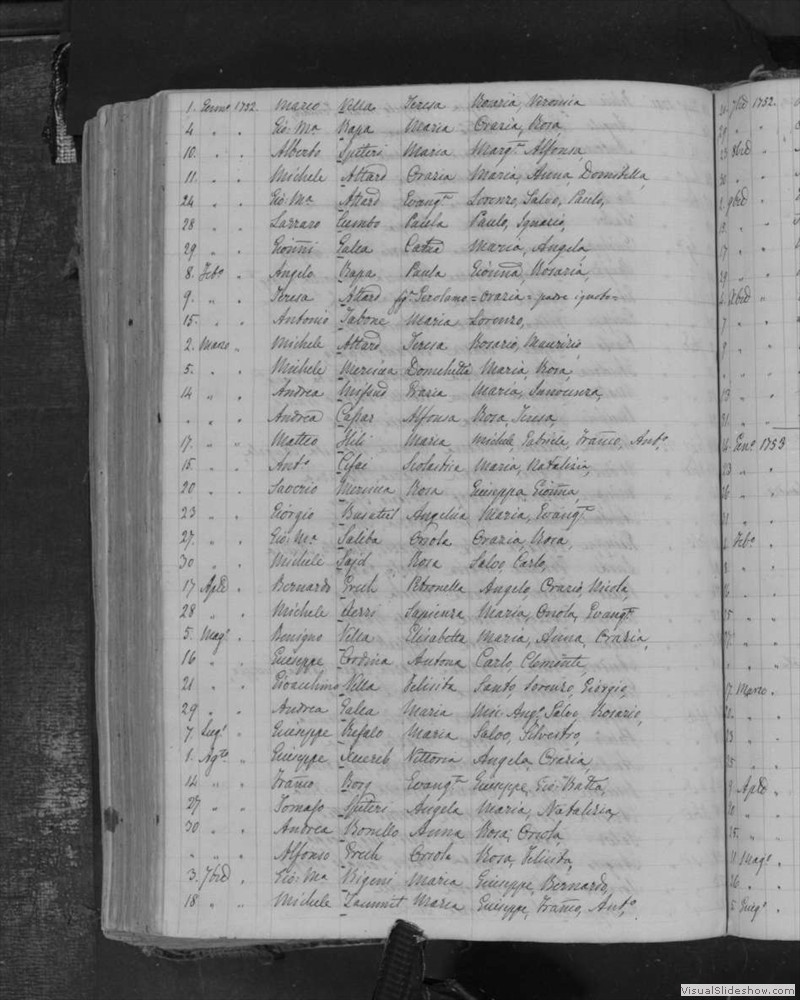 1. Genno. 1752. Mario Vella Teresa Rosaria, Veronica
4 " . Gio: Ma. Rapa Maria Orazia, Rosa,
10. " . Alberto Spiteri Maria Marg.ta Alfonsa,
11. " . Michele Attard Orazia Maria, Anna, Domitella,
24 " . Gio: Ma. Attard Evang.ta Lorenzo, Salvo, Paulo,
28 " . Lazzaro Cumbo Paula Paulo, Ignazio,
29 " . Gionni Galea Catta Maria, Angela,
8. Febo. . Angelo Rapa Paula Gionna, Rosaria,
9. " . Teresa Attard fg. Girolamo = Orazia = padre ignoto =
15. " . Antonio Tabone Maria Lorenzo,
2. Marzo " Michele Attard Teresa Rosario, Maurizio,
5. " . Michele Mercieca Maria, Rosa,
14 " . Andrea Mifsud Grazia Maria,
" " . Andrea Caspar Alfonsa Rosa, Teresa,
17. " " Matteo Hili Maria Michele, Gabriele, Franco, Anto.
15 " . Anto. Cifai Scolastica Maria, Natalizia,
20 " . Saverio Mercieca Rosa Giuseppa, Gionna,
23 " . Giorgio Busuttil Angelica Maria, Evang.ta
27. " . Gio: Ma. Saliba Orsola Orazia, Rosa,
30 " . Michele Sajd Rosa Salvo, Carlo,
17 Aple . Bernardo Grech Petronella Angelo, Orazio, Nicola,
28 " . Michele Xerri Sapienza Maria, Orsola, Evang.ta
5. Mago. . Benigno Vella Elisabetta Maria, Anna, Orazia,
16 " . Giuseppe Cordina Antona Carlo, Clemente,
21 " . Gioachino Vella Felicita Santo, Lorenzo, Giorgio,
29 " . Andrea Galea Maria Mic. Ango. Salvo, Rosario,
7. Lugo. " Giuseppe Refalo Maria Salvo, Silvestro,
1. Agto. " Giuseppe Xuereb Vittoria Angela, Orazia,
14 " . Franco Borg Evang.ta Giuseppe, Gio: Batta,
27 " . Tomaso Spiteri Angela Maria, Natalizia,
30 " . Andrea Bonello Anna Rosa, Orsola,
" " . Alfonso Grech Orsola Rosa, Felicita,
3. 7bre . Gio: Ma. Maria Giuseppe, Bernardo,
18 " " Michele Zammit Maria Giuseppe, Franco, Anto.
7bre 1752.
8bre
9bre
Xbre
Geno. 1753
Febo.
Marzo
Aple
11 Mago.
5 Giugo.
VisualSlideshow.com